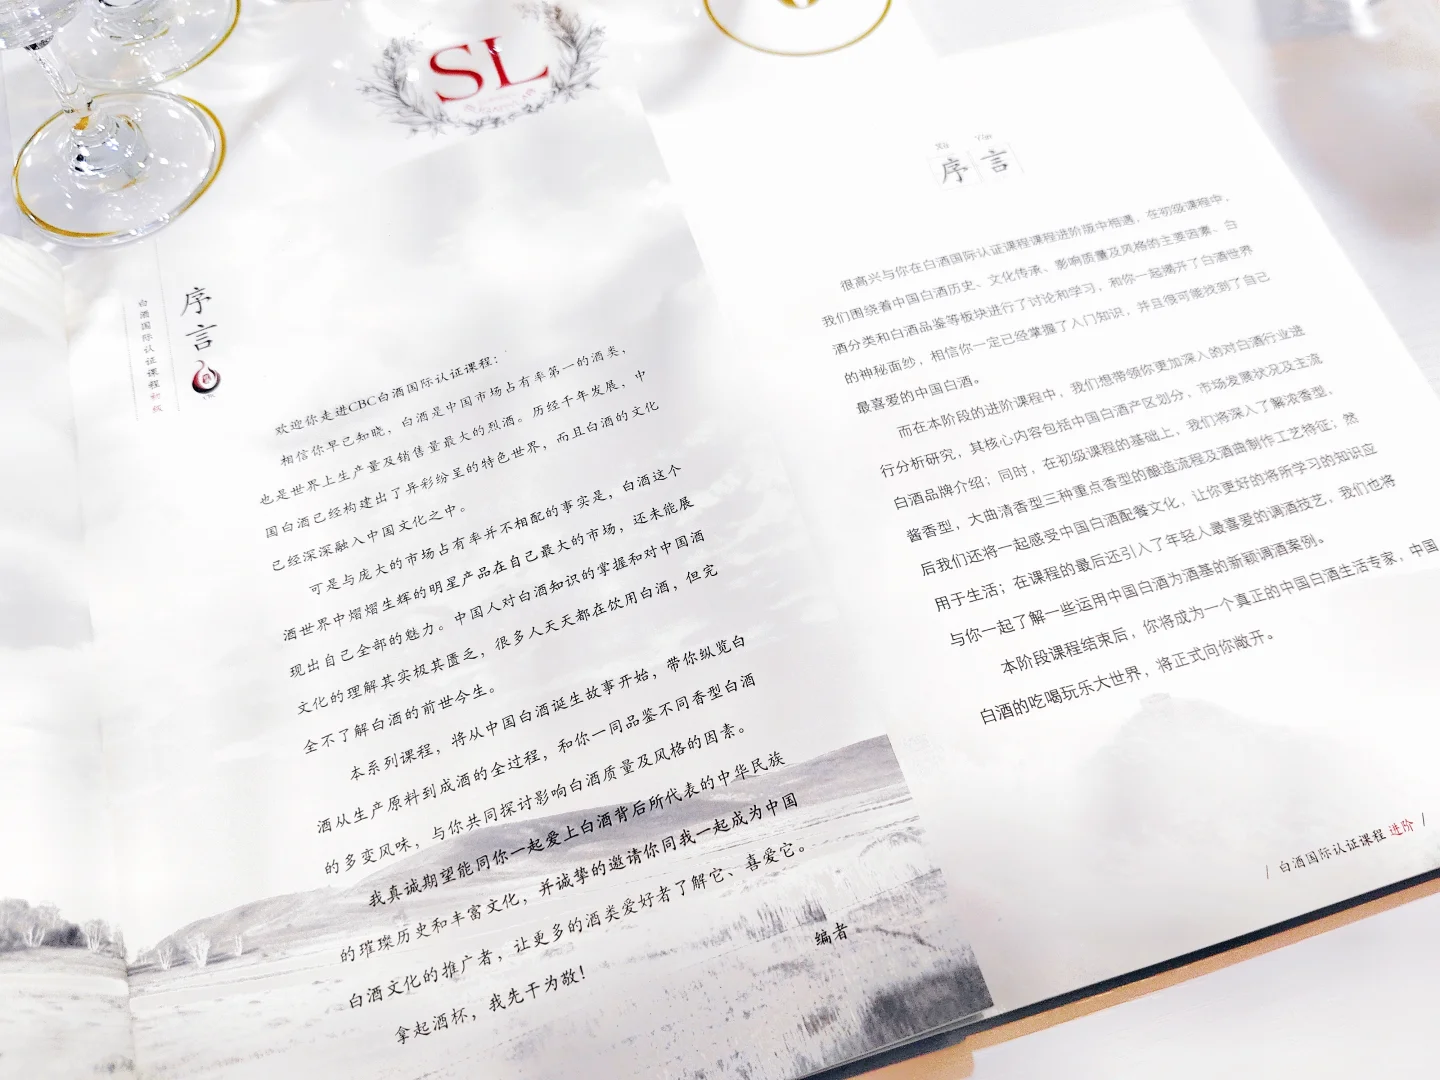 SL
序言
白酒国际认证课程初级
欢迎你走进CBC白酒国际认证课程：
相信你早已知晓，白酒是中国市场占有率第一的酒类，
也是世界上生产量及销售量最大的烈酒。历经千年发展，中
国白酒已经构建出了异彩纷呈的特色世界，而且白酒的文化
已经深深融入中国文化之中。
可是与庞大的市场占有率并不相配的事实是，白酒这个
酒世界中熠熠生辉的明星产品在自己最大的市场，还未能展
现出自己全部的魅力。中国人对白酒知识的掌握和对中国酒
文化的理解其实极其匮乏，很多人天天都在饮用白酒，但完
全不了解白酒的前世今生。
本系列课程，将从中国白酒诞生故事开始，带你纵览白
酒从生产原料到成酒的全过程，和你一同品鉴不同香型白酒
的多变风味，与你共同探讨影响白酒质量及风格的因素。
我真诚期望能同你一起爱上白酒背后所代表的中华民族
的璀璨历史和丰富文化，并诚挚的邀请你同我一起成为中国
白酒文化的推广者，让更多的酒类爱好者了解它、喜爱它。
拿起酒杯，我先干为敬！
编者
序言
很高兴与你在白酒国际认证课程课程进阶版中相遇，在初级课程中，
我们围绕着中国白酒历史、文化传承、影响质量及风格的主要因素、白
酒分类和白酒品鉴等板块进行了讨论和学习，和你一起揭开了白酒世界
的神秘面纱，相信你一定已经掌握了入门知识，并且很可能找到了自己
最喜爱的中国白酒。
而在本阶段的进阶课程中，我们想带领你更加深入的对白酒行业进
行分析研究，其核心内容包括中国白酒产区划分，市场发展状况及主流
白酒品牌介绍；同时，在初级课程的基础上，我们将深入了解浓香型，
酱香型，大曲清香型三种重点香型的酿造流程及酒曲制作工艺特征；然
后我们还将一起感受中国白酒配餐文化，让你更好的将所学习的知识应
用于生活；在课程的最后还引入了年轻人最喜爱的调酒技艺，我们也将
与你一起了解一些运用中国白酒为酒基的新颖调酒案例。
本阶段课程结束后，你将成为一个真正的中国白酒生活专家，中国
白酒的吃喝玩乐大世界，将正式向你敞开。
/ 白酒国际认证课程 进阶 /